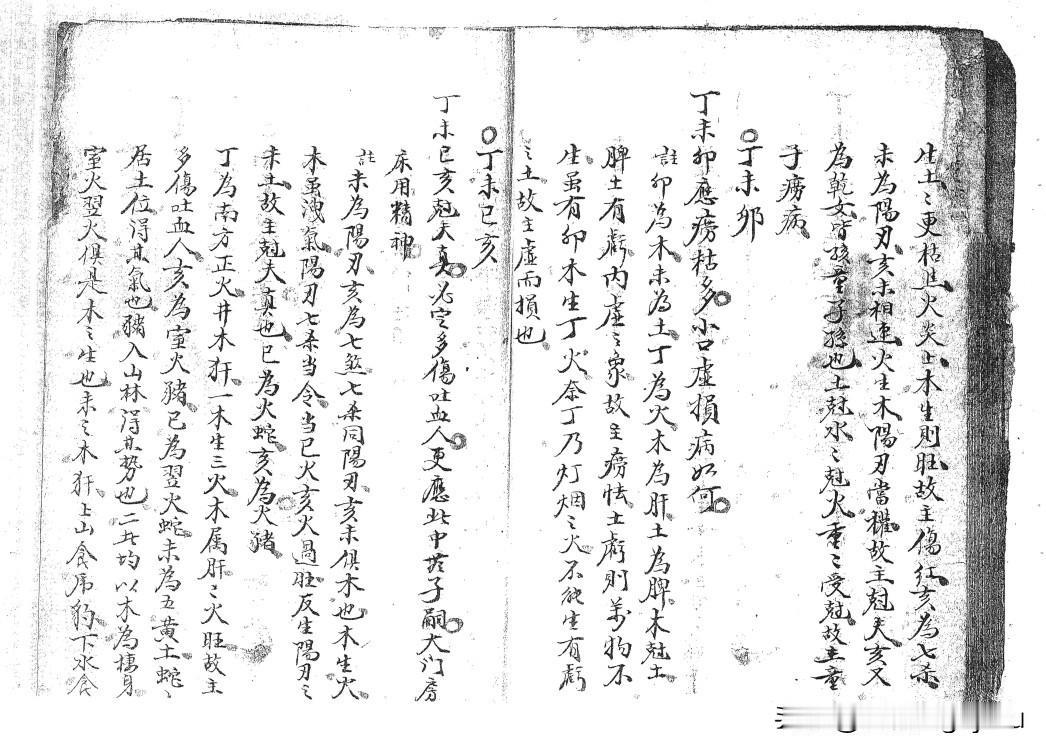 生土〻更枯且火炎土木生則旺故主傷紅亥為七杀
未為陽刃亥未相連火生木陽刃當權故主尅夫亥又
為乾女皆孩童子孫也土尅水〻尅火重〻受尅故主童
子癆病
丁未卯
丁未卯應癆枯多小口虛損病如何
註卯為木未為土丁為火木為肝土為脾木尅土
脾土有虧内虛之象故主癆怯土虧則萬物不
生虽有卯木生丁火奈丁乃灯烟之火不能生有虧
之土故主虛而損也
丁未巳亥
丁未巳亥尅夫真必定多傷吐血人更應此中苦子嗣大门房
床用精神
註未為陽刃亥為七煞七杀同陽刃亥未俱木也木生火
木虽洩氣陽刃七杀当令当巳火亥火過旺反生陽刃之
未土故主尅夫真也巳為火蛇亥為火豬
丁為南方正火井木犴一木生三火木属肝〻火旺故主
多傷吐血人亥為室火豬巳為翌火蛇未為五黄土蛇〻
居土位得其氣也豬入山林得其勢也二此均以木為棲身
室火翌火俱是木之生也未之木犴上山食虎豹下水食